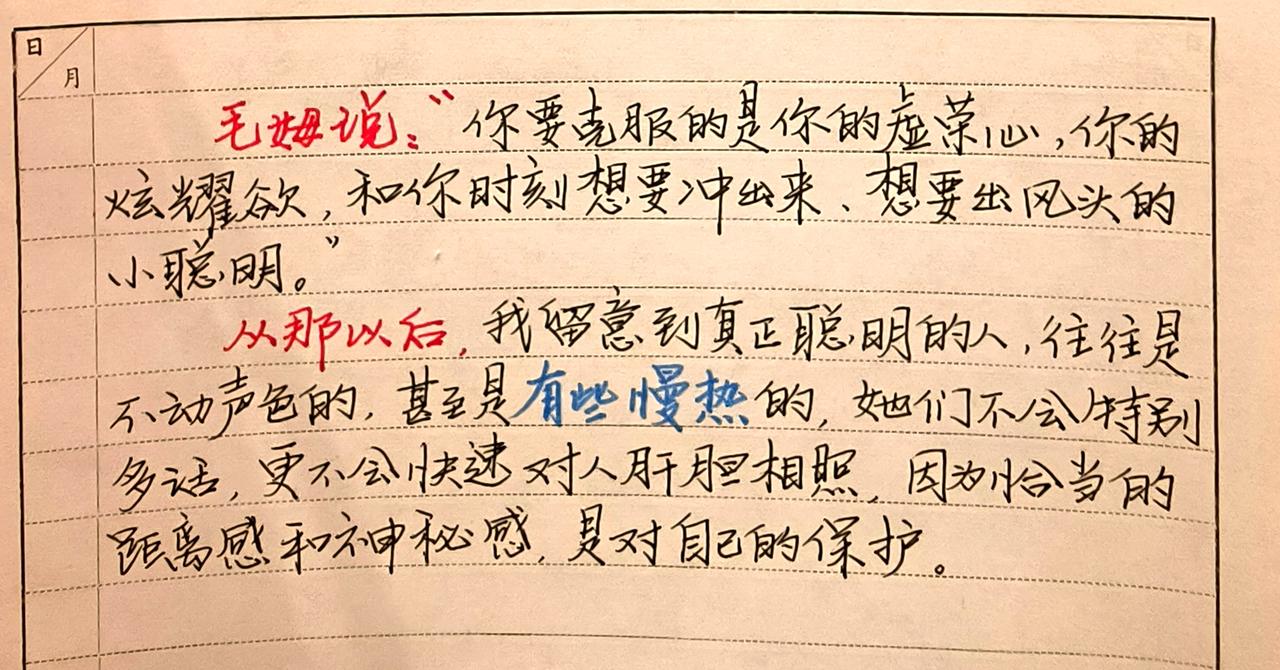 日
月
毛姆说:“你要克服的是你的虚荣心,你的
炫耀欲,和你时刻想要冲出来、想要出风头的
小聪明。”
从那以后,我留意到真正聪明的人,往往是
不动声色的,甚至是有些慢热的,她们不会特别
多话,更不会快速对人肝胆相照,因为恰当的
距离感和神秘感,是对自己的保护。